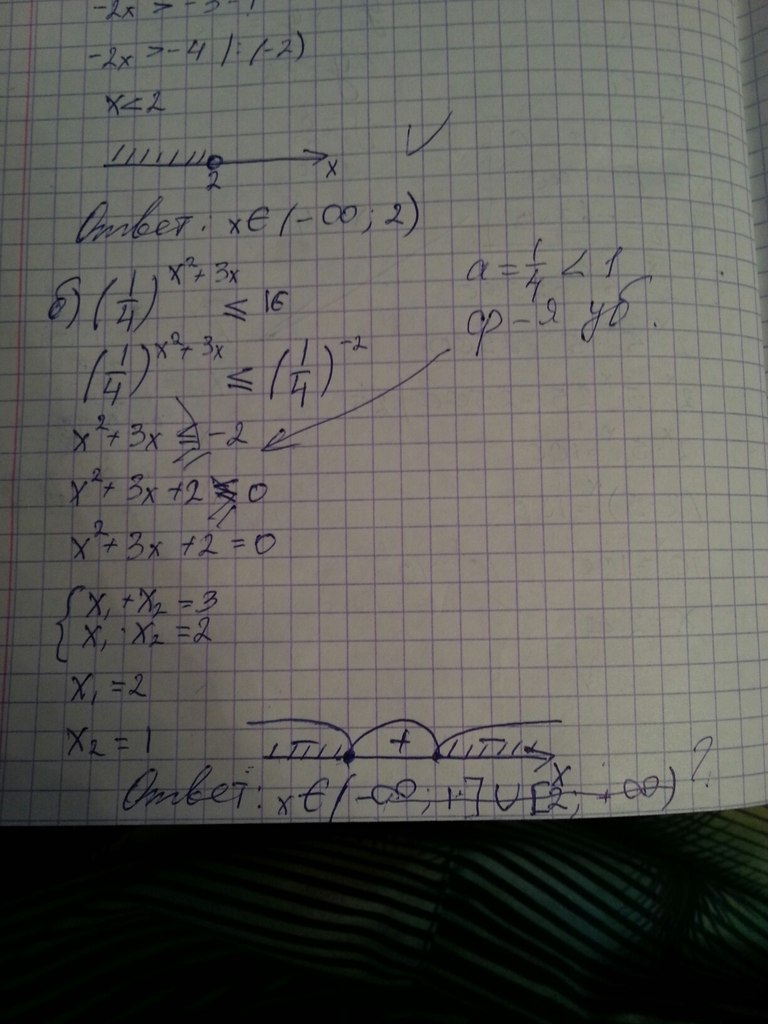 -2x > -3-1
-2x > -4 |: (-2)
x < 2
2 x
Ответ: x ∈ (-∞; 2)
б) (1/4)^(x²+3x) ≤ 16
a = 1/4 < 1
ф-я уб.
(1/4)^(x²+3x) ≤ (1/4)^(-2)
x² + 3x ≥ -2
x² + 3x + 2 ≥ 0
x² + 3x + 2 = 0
{ x₁ + x₂ = 3
x₁ · x₂ = 2
x₁ = 2
x₂ = 1
+ x
Ответ: x ∈ (-∞; 1] ∪ [2; +∞) ?